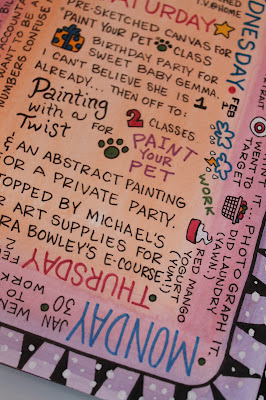 SATURDAY
T.V.@HOME
PRE-SKETCHED CANVAS FOR
PAINT YOUR PET CLASS
BIRTHDAY PARTY FOR
SWEET BABY GEMMA.
CAN'T BELIEVE SHE IS 1
ALREADY... THEN OFF TO:
Painting
with a
Twist
2 CLASSES
FOR PAINT
YOUR
PET
& AN ABSTRACT PAINTING
FOR A PRIVATE PARTY.
STOPPED BY MICHAEL'S
R ART SUPPLIES FOR
RA BOWLEY'S E-COURSE!
ACCOUNTA
TO BE A
NUMBERS CONFUSE
DNESDAY
FEB
1
WORK
WENT TO
TARGET
DID LAUNDRY
(YAWN.)
YOGURT
(YUM!)
PHOTOGRAPH IT
THURSDAY
FEB
2
MONDAY
JAN
30
WENT
TO
WORK